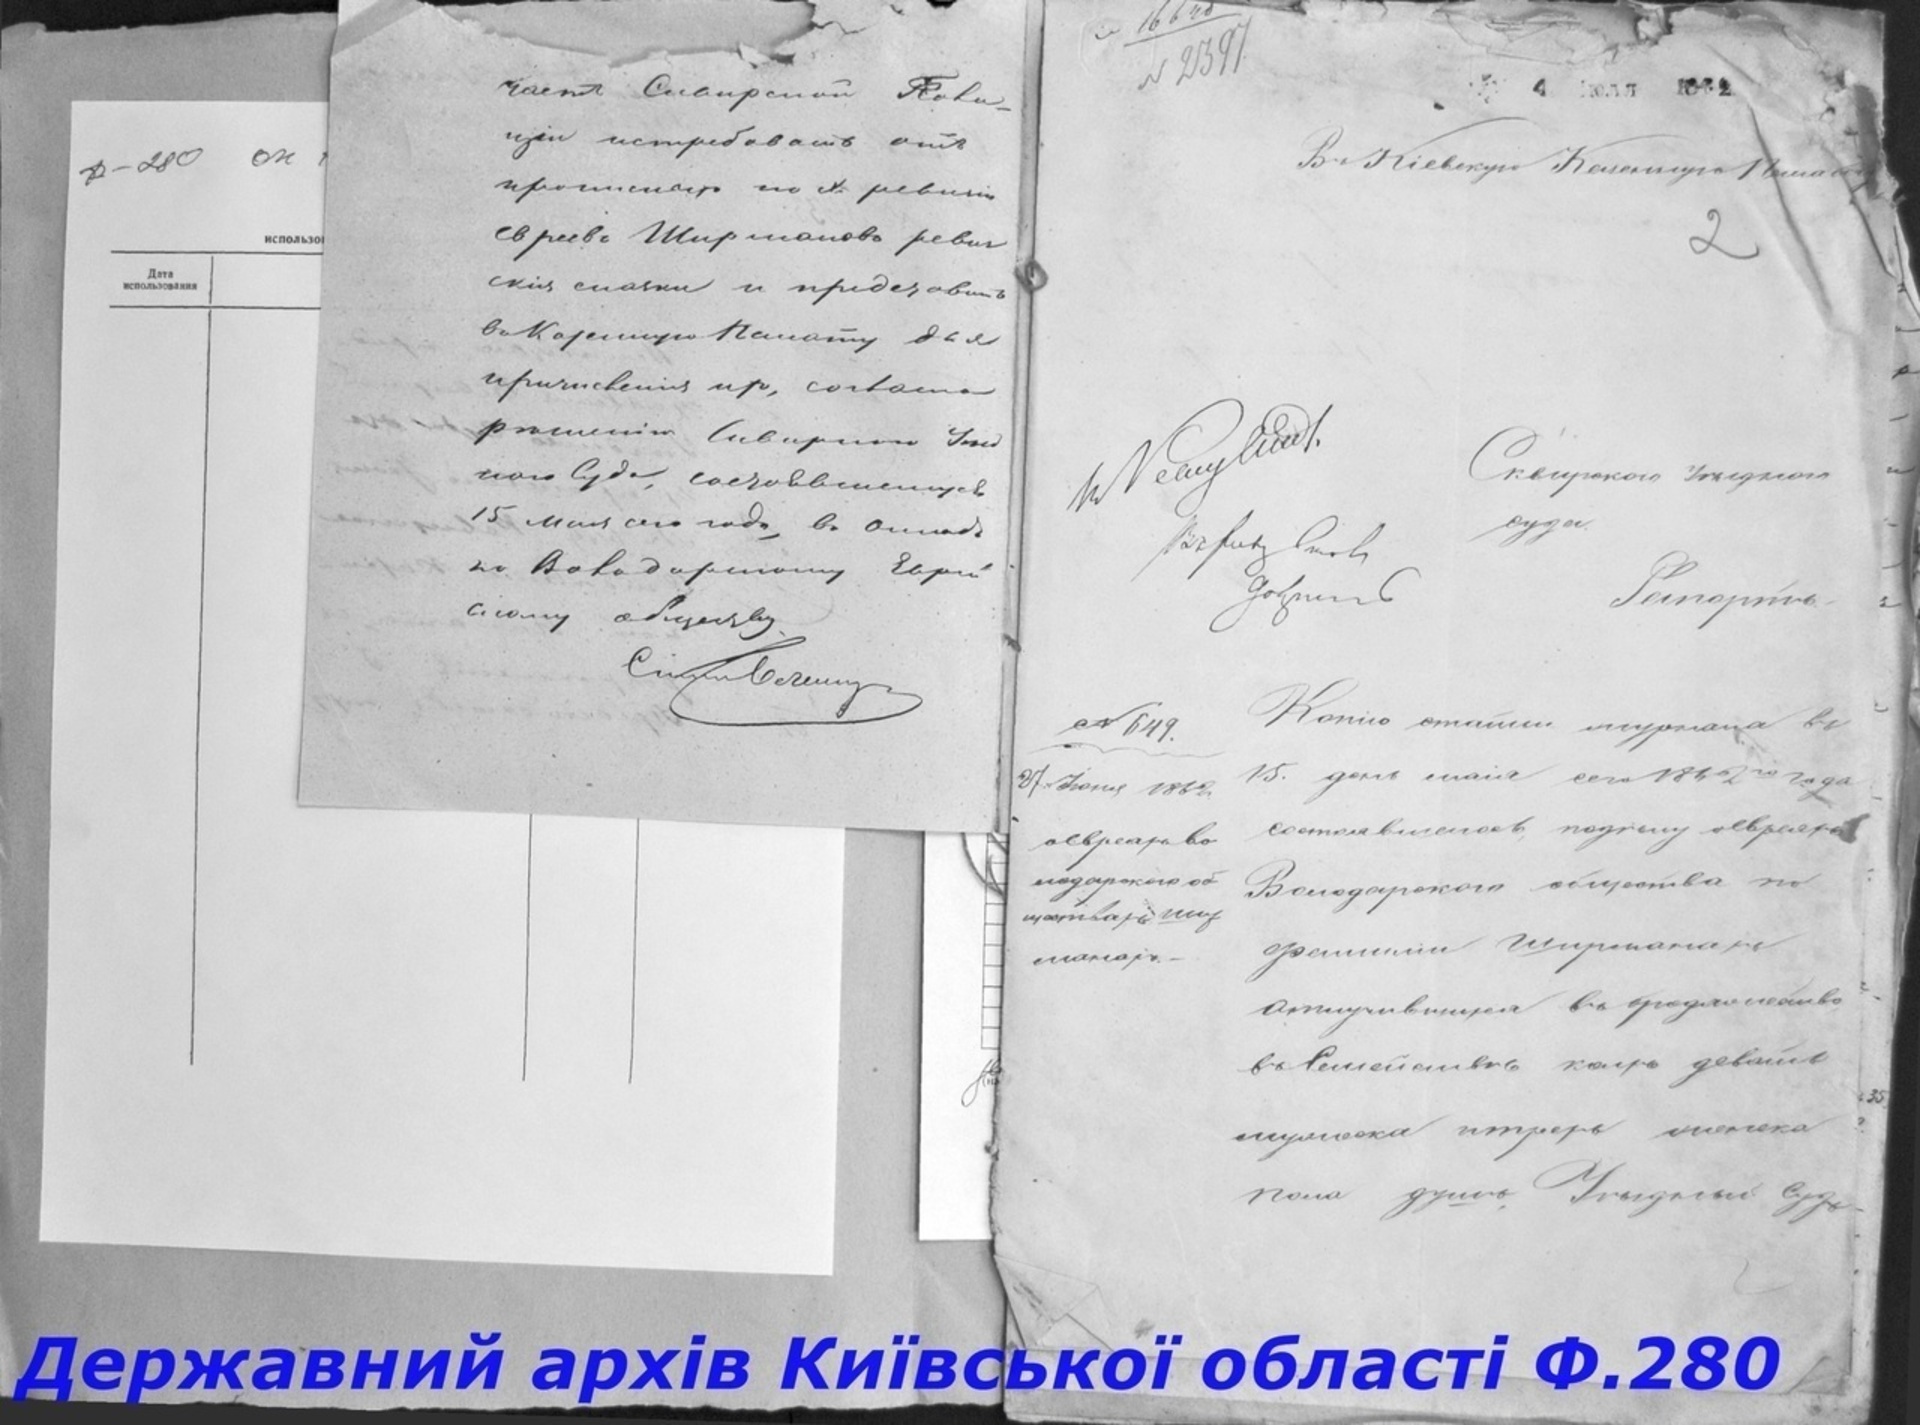 ф-280 оп
использо
Дата
использования
часть Сквирской Поли-
ціи истребовать отъ
прописныхъ по X ревизіи
евреевъ Ширмановъ ревиз
скія сказки и представить
въ Казенную Палату для
причисленія ихъ, согласно
рѣшенію Сквирского Уѣзд
ного Суда, состоявшемуся
15 мая сего года, въ окладъ
по Володарскому Еврей
скому обществу.
16640
№ 2397
4 ІЮЛЯ 1862
Въ Кіевскую Казенную Палату
2
Сквирского Уѣздного
суда
Рапортъ
№ 649.
27 Іюня 1862
о евреяхъ Во
лодарского об
щества Шир
манахъ.
Копію статьи журнала въ
15. день маія сего 1862го года
состоявшегося, по дѣлу о евреяхъ
Володарского общества по
фамиліи Ширманахъ
отлучившихся въ
въ Семействѣ коихъ девять
мужеска и трехъ женска
пола душъ, Уѣздный Судъ
35
Державний архів Київської області Ф.280